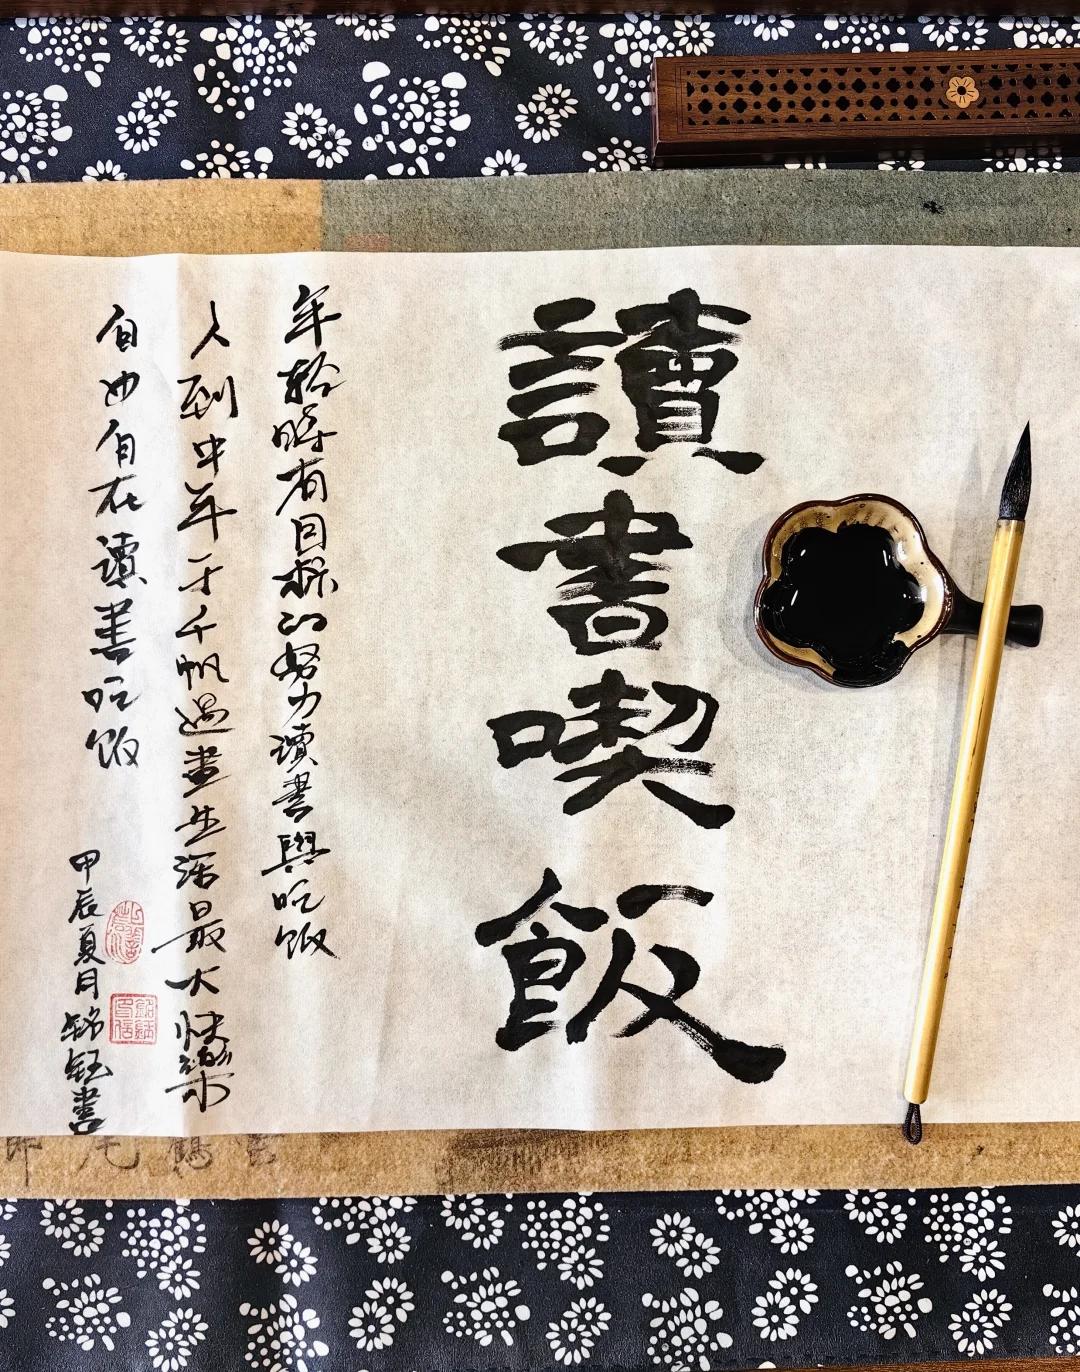 讀書喫飯
年輕時有目標的努力讀書與吃飯
人到中年才千帆過盡生活最大快樂
自由自在讀書吃飯
甲辰夏月銘鈺書